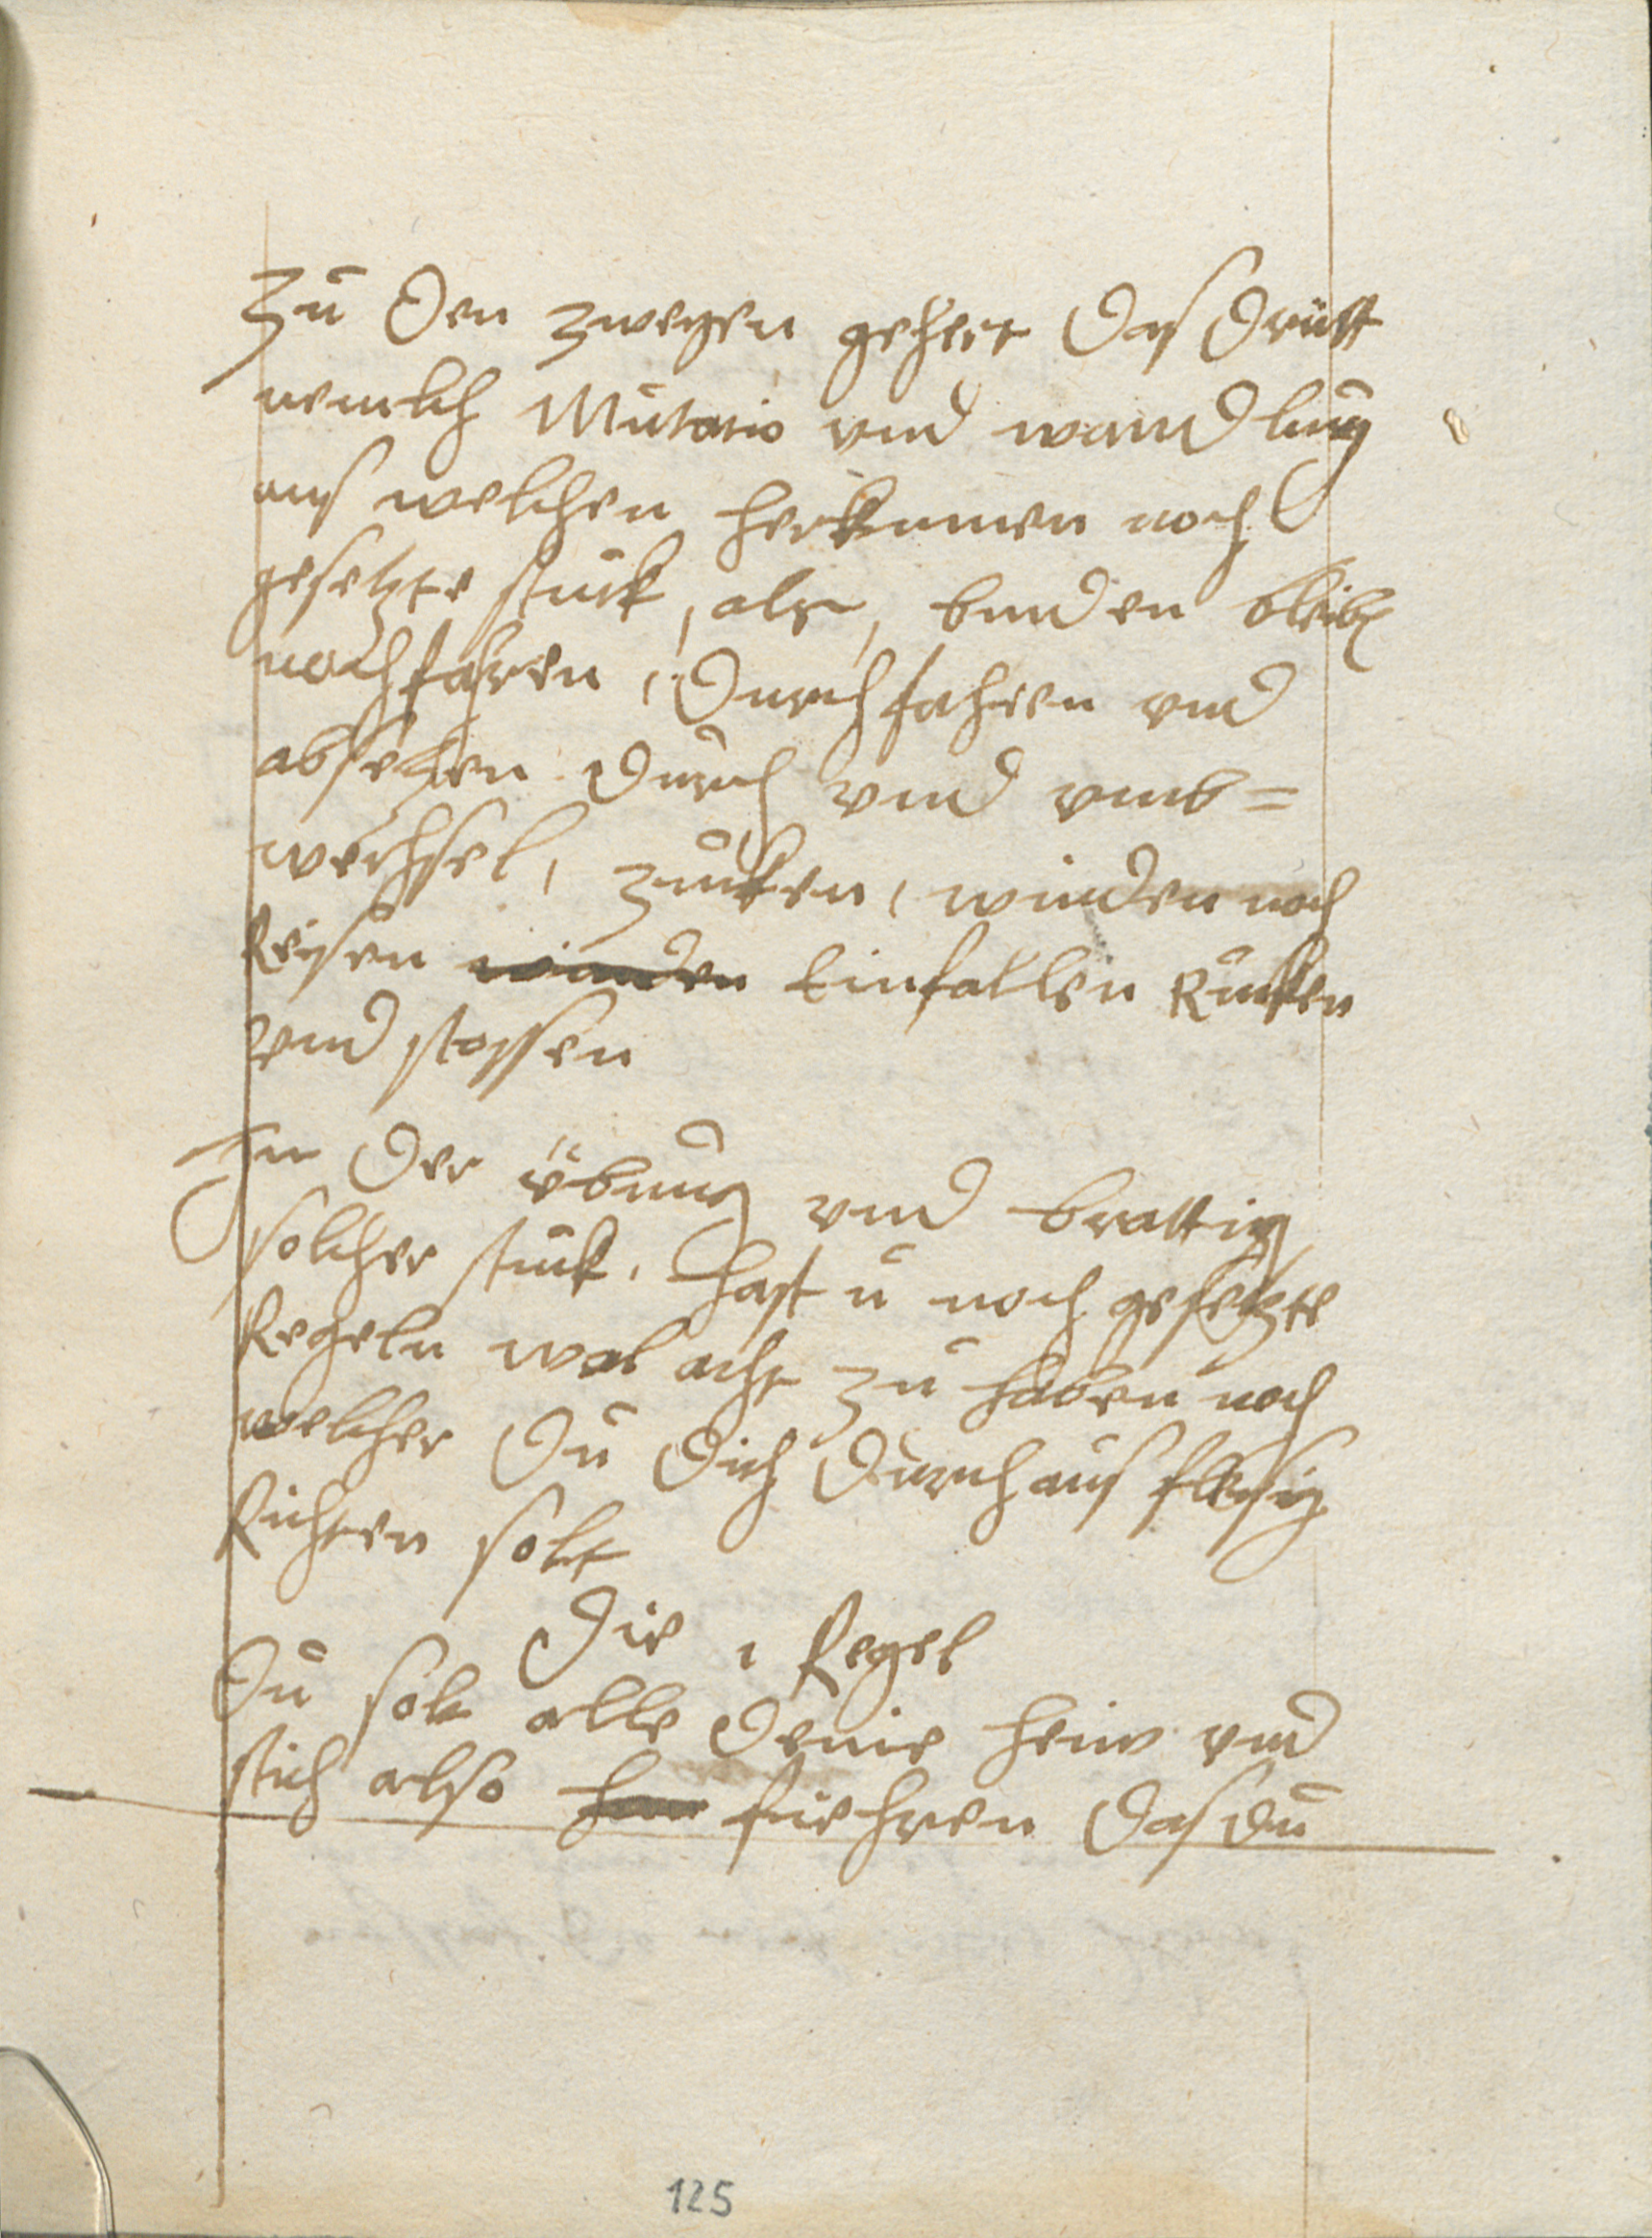 Zu den zweyen gehert das dritt
nemlich Mutatio vnd wandlung
aus welchen herkumen noch
gesetzte stuck, als, banden bleib
nachfahren, durchfahren vnd
absetzen durch vnd vmb=
wechsel, zucken, winden noch
Reisen winden Einfallen Rucken
vnd stossen
In der übung vnd brattig
solcher stuck, hast u noch gesetzte
Regeln wol acht zu haben noch
welcher du dich durchaus flesig
Richten solt
Die 1 Regel
Du solt alle deine heiw vnd
stich also fiehren das du
125